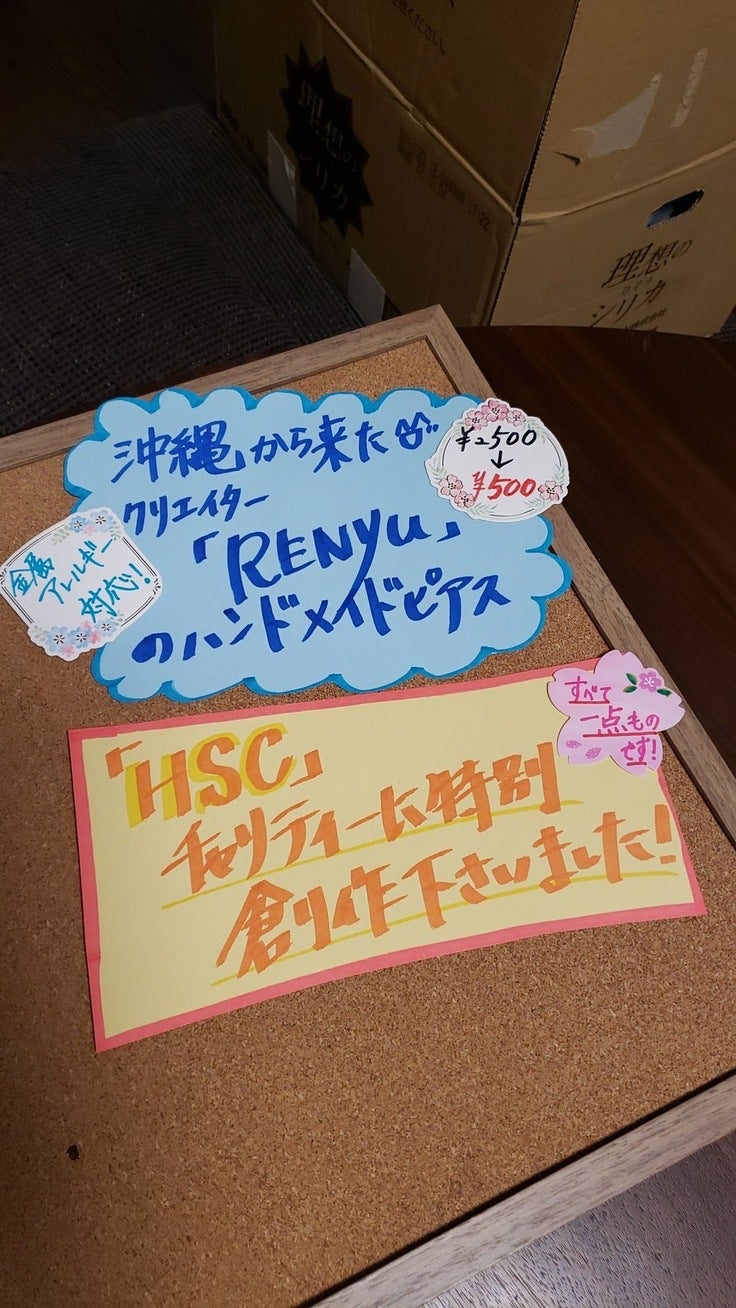 ください。
理想の
シリカ
理想の
シリカ
沖縄から来た
クリエイター
「RENYU」
のハンドメイドピアス
¥2500
↓
¥500
金属
アレルギー
対応!
「HSC」
チャリティーに特別
創作下さいました!
すべて
一点もの
です!